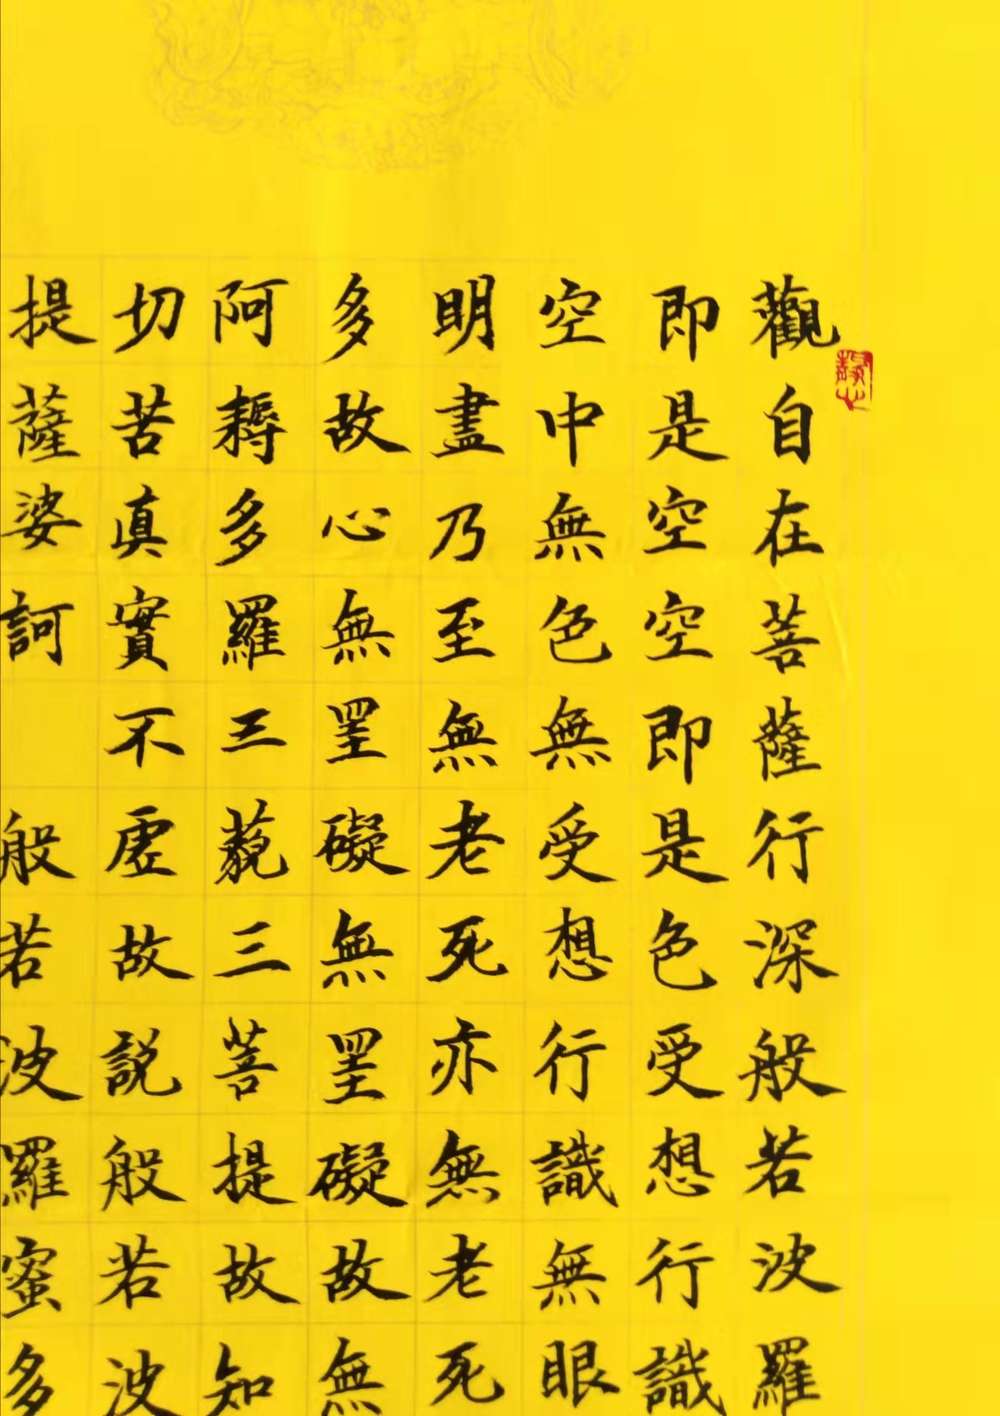 觀自在菩薩行深般若波羅
即是空空即是色受想行識
空中無色無受想行識無眼
明盡乃至無老死亦無老死
多故心無罣礙無罣礙故無
阿耨多羅三藐三菩提故知
切苦真實不虛故說般若波
提薩婆訶 般若波羅蜜多